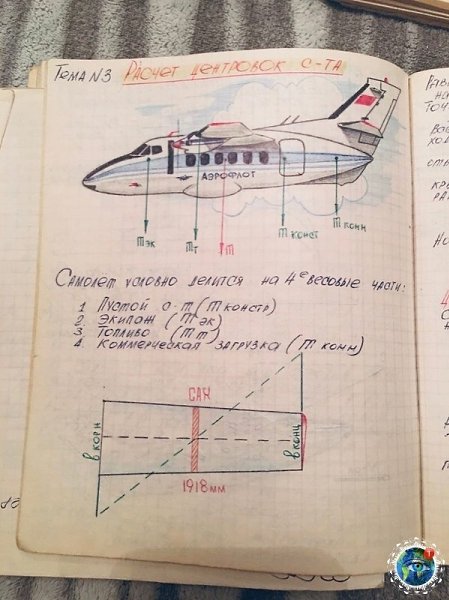 Тема №3 Расчет центровок с-та
АЭРОФЛОТ
m эк
m т
m
m конст
m конн
Самолет условно делится на 4е весовые части:
1 Пустой с-т (m констр)
2. Экипаж (m эк)
3. Топливо (m т)
4. Коммерческая загрузка (m конн)
САХ
в корн
в конц
1918мм